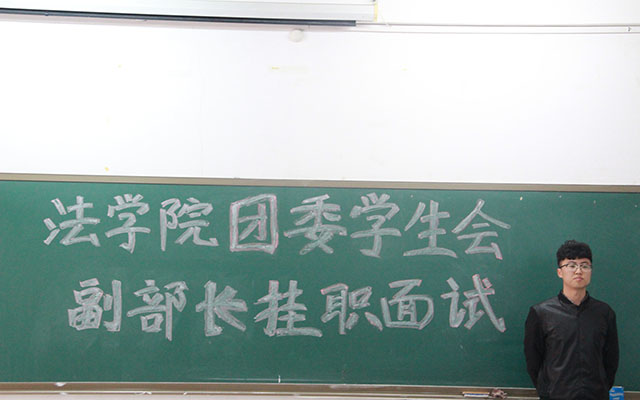 法学院团委学生会
副部长挂职面试